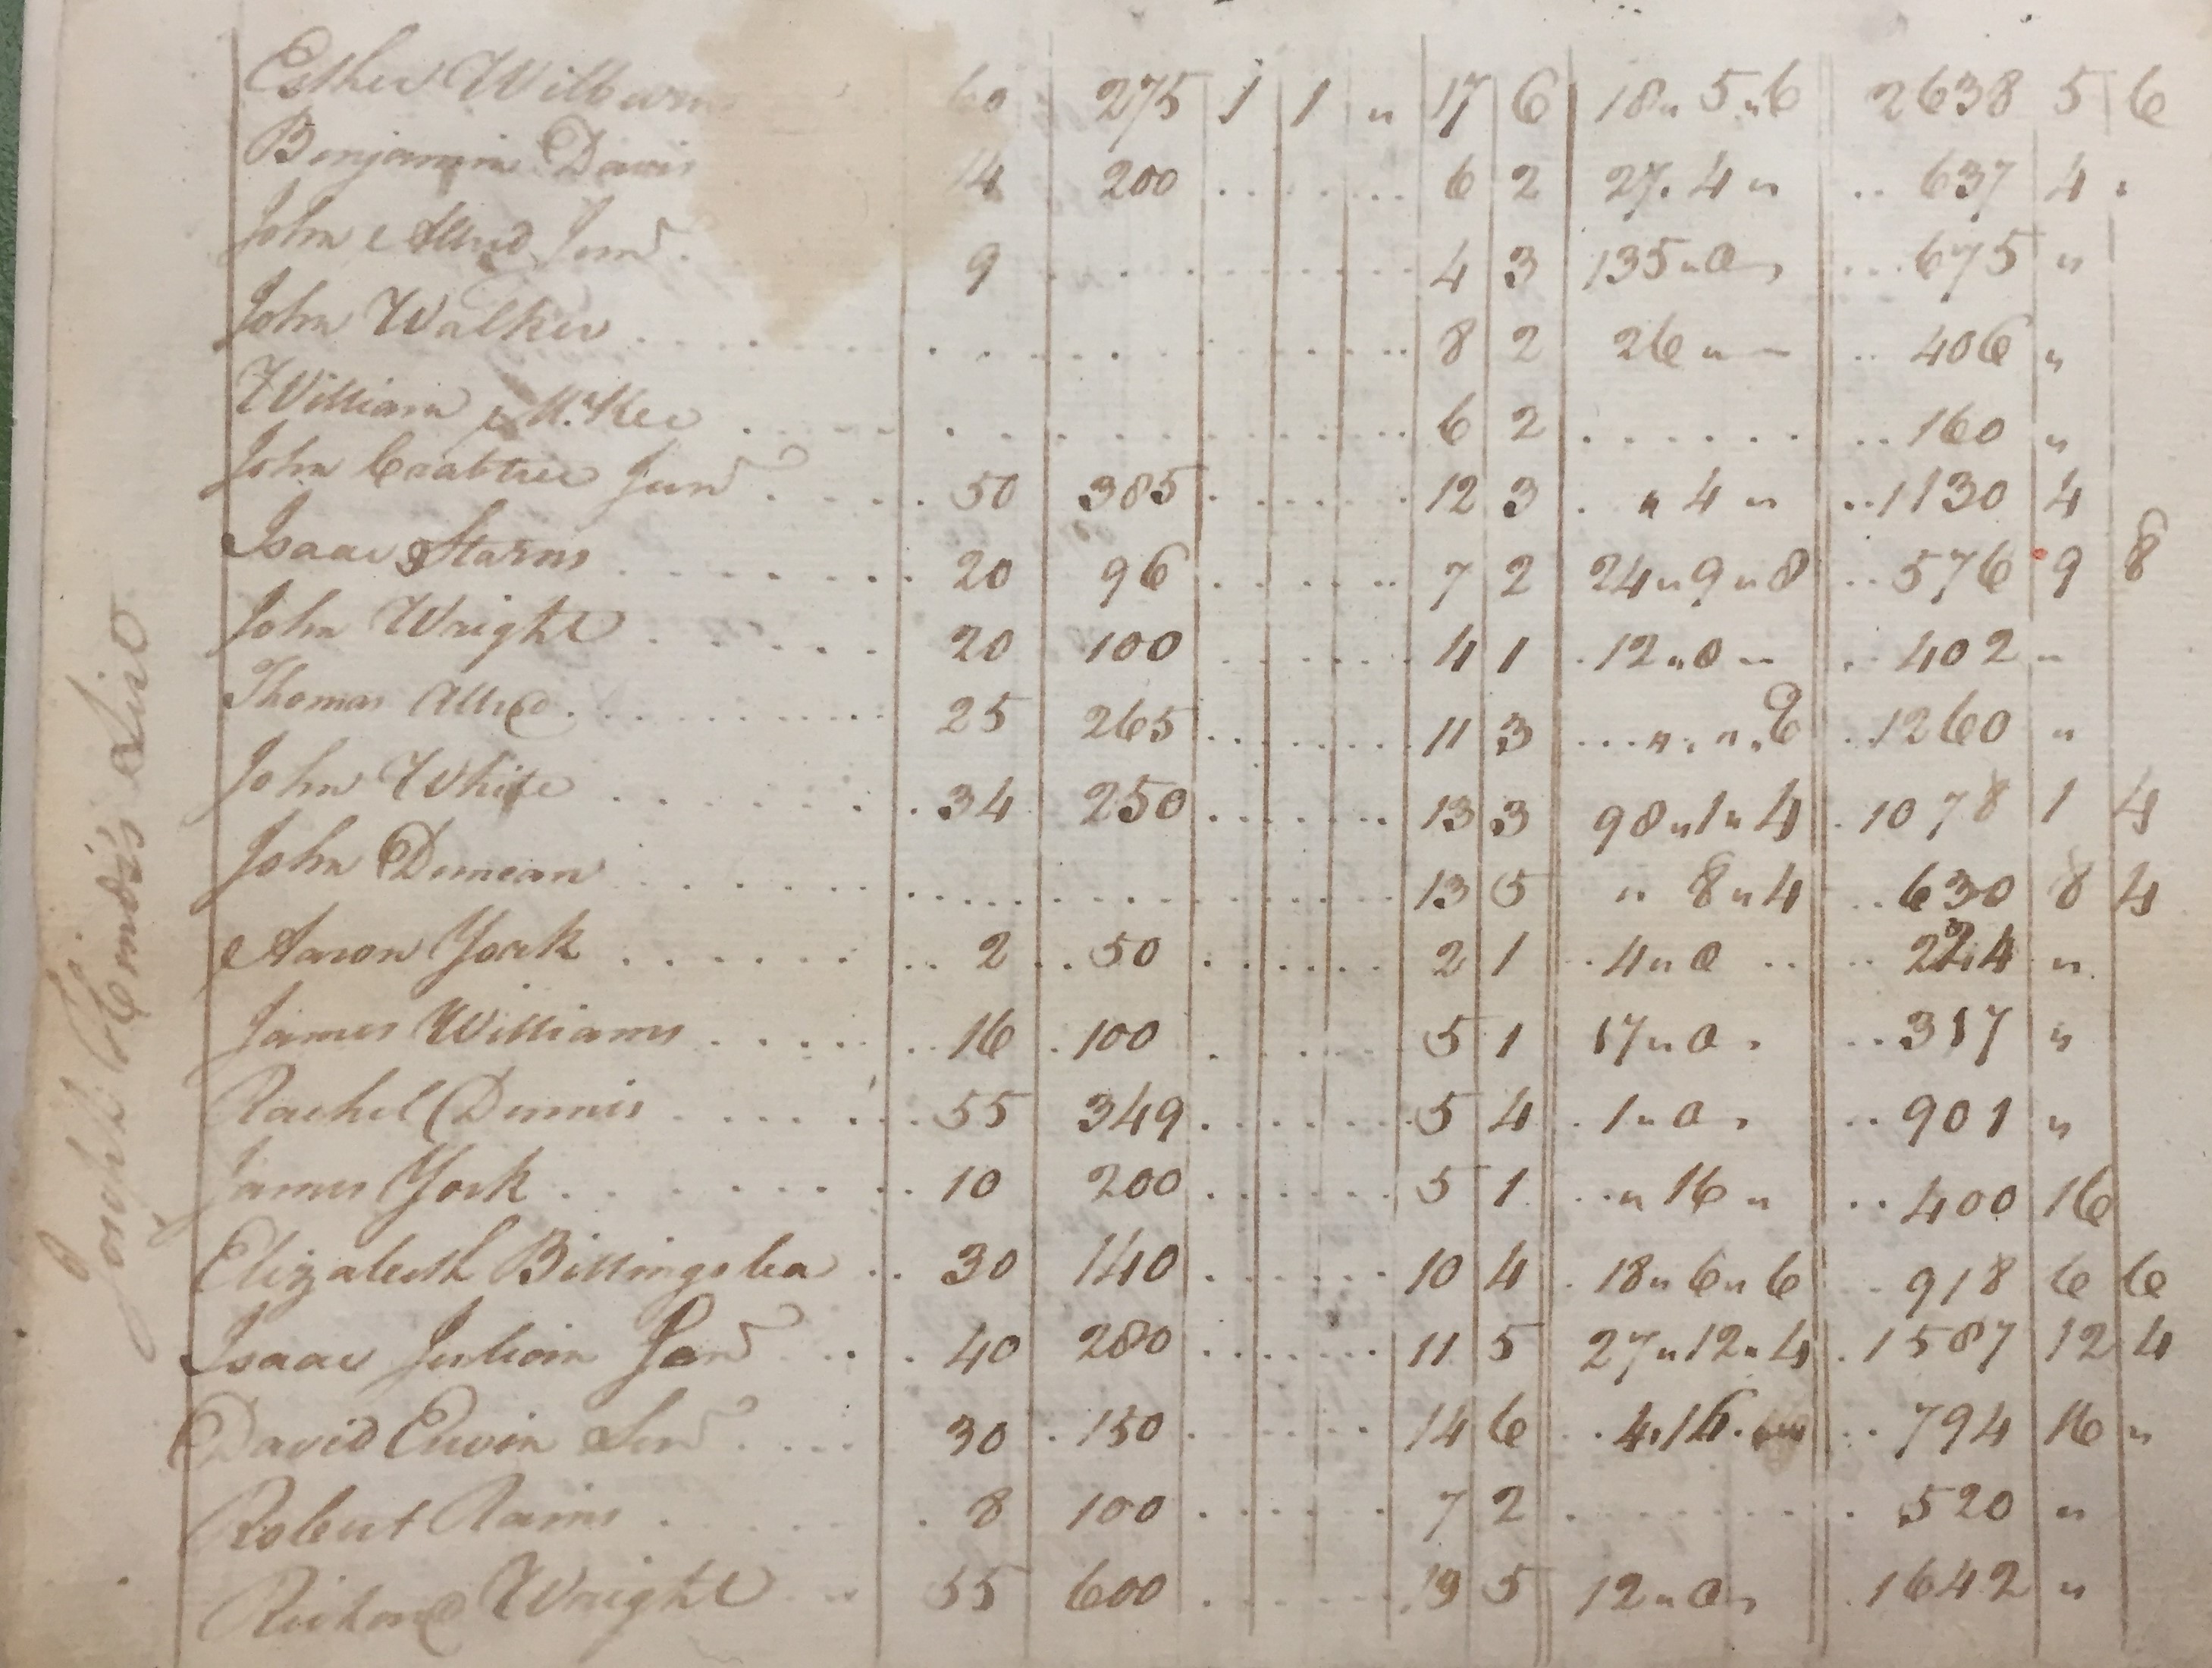 Esther Wilburn 60 275 1 1 " 17 6 18 " 5 " 6 2638 5 6
Benjamin Davis 14 200 . . . . . . 6 2 27 . 4 " . . 637 4 "
John Allred Junr. 9 . . . . . . . . 4 3 135 " 0 " . . . 675 "
John Walker . . . . . . . . . . . . 8 2 26 " — . . 406 "
William McKee . . . . . . . . . . . . 6 2 . . . . . . . . 160 "
John Crabtree Junr . . . . 50 385 . . . . . . 12 3 . " 4 " . . 1130 4
Isaac Starns . . . . . . . 20 96 . . . . . . 7 2 24 " 9 " 8 . . 576 9 8
John Wright . . . . . . 20 100 . . . . . . 4 1 . 12 " 0 " . . 402 "
Thomas Allred . . . . . . . . 25 265 . . . . . . 11 3 . . . " . " . 6 . 1260 "
John White . . . . . . 34 250 . . . . . . 13 3 98 " 1 " 4 . 1078 1 4
John Duncan . . . . . . . . . . . . 13 5 " 8 " 4 . . 630 8 4
Aaron York . . . . . . . . 2 . . 50 . . . . . . 2 1 . 4 " 0 . . . . "
James Williams . . . . . . . 16 . 100 . . . . 5 1 17 " 0 . . . 317 "
Rachel Dennis . . . . . . 55 349 . . . . . . 5 4 . 1 " 0 " . . 901 "
James York . . . . . . . . 10 200 . . . . . . 5 1 . . " 16 " . . 400 16
Elizabeth Billingslea . . 30 140 . . . . . . 10 4 . 18 " 6 " 6 . . 918 6 6
Isaac Julian Senr . . . 40 280 . . . . . . 11 5 27 " 12 " 4 . 1587 12 4
David Erwin Senr . . . . 30 . 150 . . . . . . 14 6 . . 4 . 16 . . . 794 16 "
Robert Rains . . . . . . 8 100 . . . . . . 7 2 . . . . . . . . 520 "
Richard Wright . . 55 600 . . . . . . 19 5 12 " 0 " . 1642 "
Joseph List